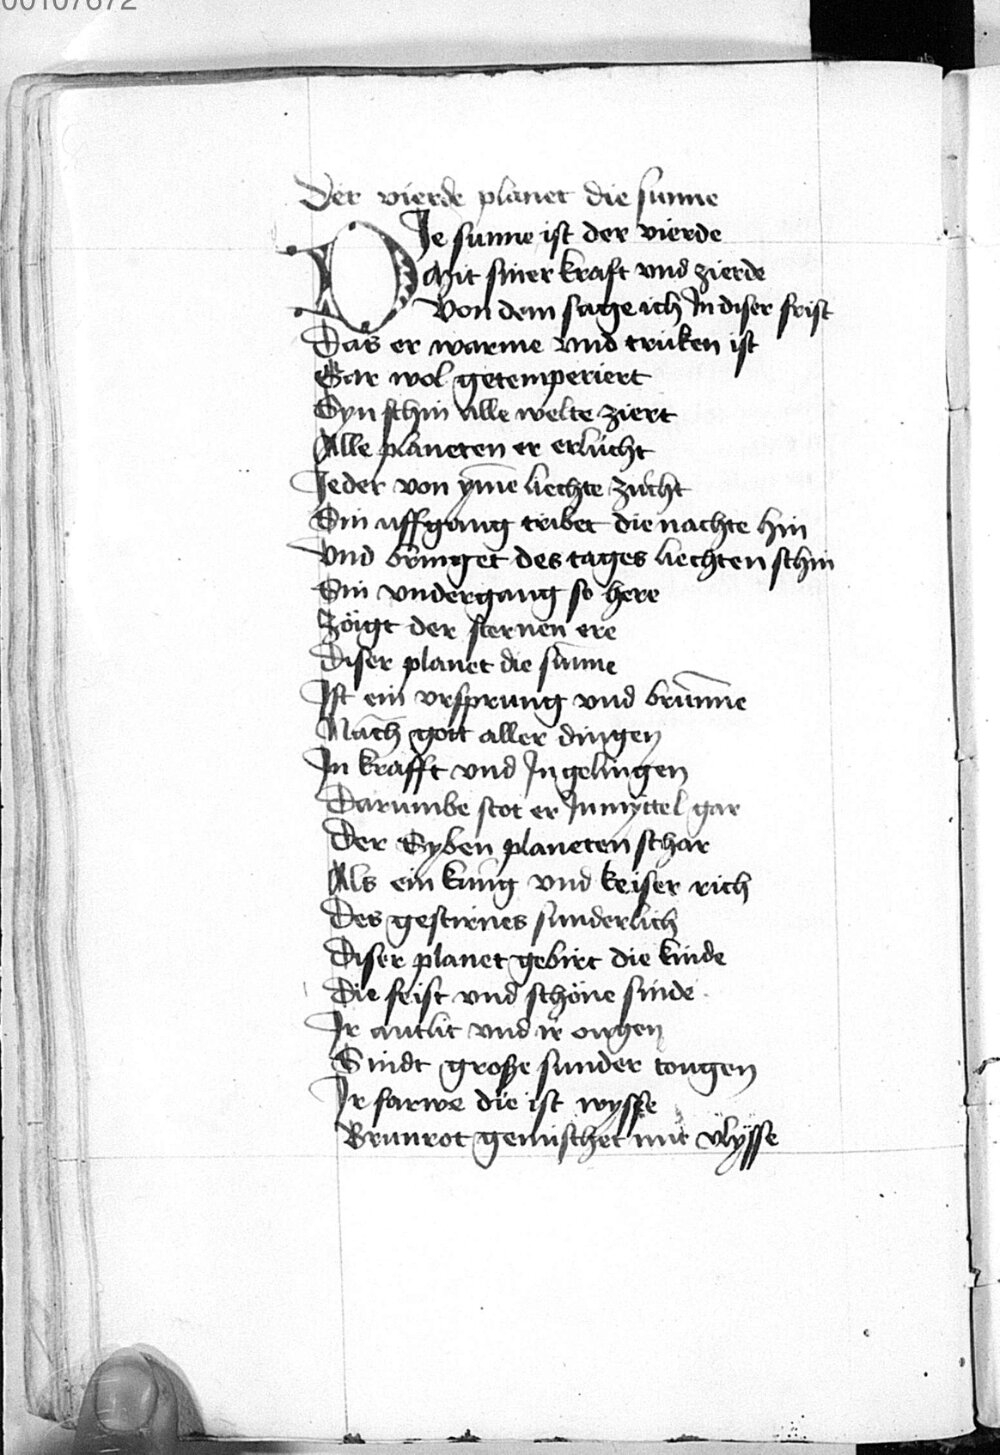 00107672
Der vierde planet die sunne
DIe sunne ist der vierde
Mit siner kraft vnd zierde
Von dem sage ich In diser frist
Das er warme vnd truken ist
Gar wol getemperiert
Syn schin alle welte ziert
Alle planeten er erlúcht
Jeder von ym̄e liechte zúcht
Sin uffgang tribet die nachte hin
Vnd bringet des tages liechten schin
Sin vndergang so here
Zöigt der sternen ere
Diser planet die sūnne
Ist ein vrsprung vnd brūnne
Nach gott aller dingen
In krafft vnd In gelingen
Darumbe stot er In myttel gar
Der Syben planeten schar
Als ein kúng vnd keiser rich
Des gestirnes sunderlich
Diser planet gebirt die kinde
Die feist vnd schöne sinde
Ir antlit vnd ir ougen
Sindt große sunder tougen
Ir farwe die ist wysse
Brunrot gemischet mit vlysse